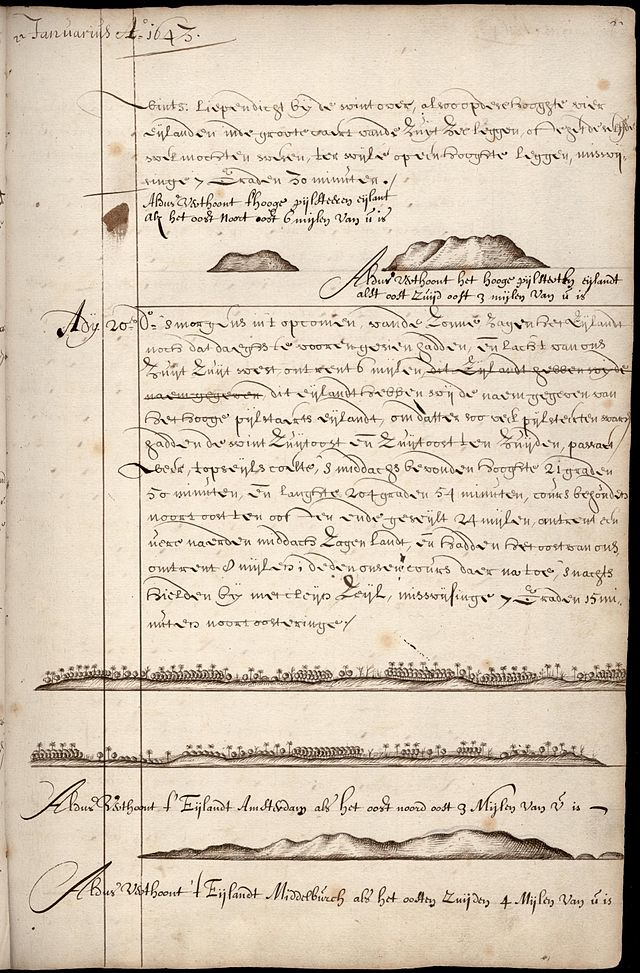 Januarius Aº 1643.
wints: Liepen dicht by de wint over, alsoo op dese hooghte vier
Eijlanden inde groote caert vande Zuijt Zee leggen, of dezelde
wel mochten wesen, ter wijle op een hooghte leggen, miswij-
singe 7 Graden 30 minuten ./
Aldus Verthoont t hooge pijlsteeren eijlant
als het oost noort oost 6 mijlen van u is
Aldus verthoont het hooge pijlsteerten eijlandt
alst oost zuijd oost 3 mijlen van u is
Ady 20en dº: 's morgens int opcomen, vande Zonne zagen het Eijlandt
noch dat daeghs te vooren gesien hadden, en lacht van ons
Zuijt Zuijt west ontrent 6 mijlen, dit Eijlandt hebben wij de
naem gegeven, dit eijlandt hebben wij de naem gegeven van
het hooge pijlstaerts eijlandt, om datter soo veel pijlsteerten waren
hadden de wint Zuijtoost en Zuijtoost ten Zuijden, passaet
weer, topseijls coelte, s middachs bevonden hooghte 21 graden
50 minuten, en langhte 204 graden 54 minuten, cours behouden
noort oost ten oosten ende geseijlt 24 mijlen, ontrent een
uere naerden middach zagen landt, en hadden het oost van ons
ontrent 8 mijlen; deden onsen cours daer na toe, s nachts
hielden by met cleijn Zeijl, miswijsinge 7 Graden 15 mi-
nuten noort oosteringe ./
Aldus Verthoont t' Eijlandt Amsterdam als het oost noord oost 3 Mijlen van u is
Aldus Verthoont 't Eijlandt Middelburch als het oosten Zuijden 4 Mijlen van u is